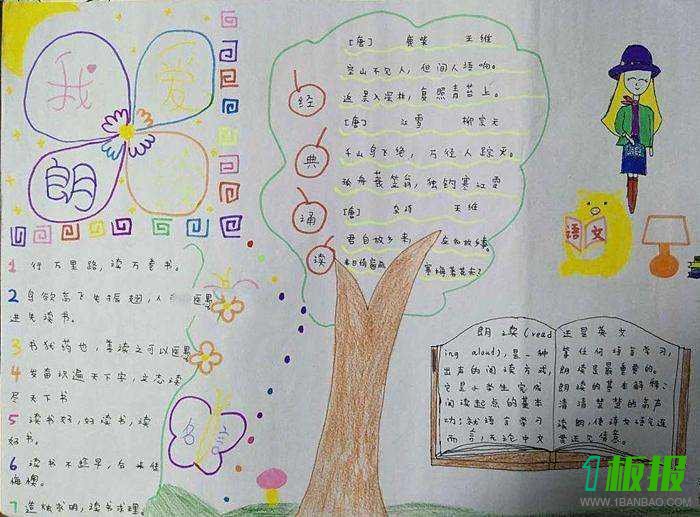 我
爱
朗
经
典
诵
读
[唐] 鹿柴 王维
空山不见人,但闻人语响。
返景入深林,复照青苔上。
[唐] 江雪 柳宗元
千山鸟飞绝,万径人踪灭。
孤舟蓑笠翁,独钓寒江雪
[唐] 杂诗 王维
君自故乡来
来日绮窗前 寒梅著花未?
语文
1 行万里路,读万卷书。
2 鸟欲高飞先振翅,人
进先读书。
3 书犹药也,善读之可以医愚
4 发奋识遍天下字,立志读
尽天下书
5 读书好,好读书,读
好书。
6 读书不趁早,后来徒
悔懊。
7 读书求理。
名言
朗读(read
ing aloud),是一种
出声的阅读方式,
它是小学生完成
阅读起点的基本
功;就语言学习
而言,无论中文
还是英文
等任何语言学习,
朗读是最重要的。
朗读的基本解释:
清清楚楚的高声
读诵,使语文语
1板报
WWW.1BANBAO.COM